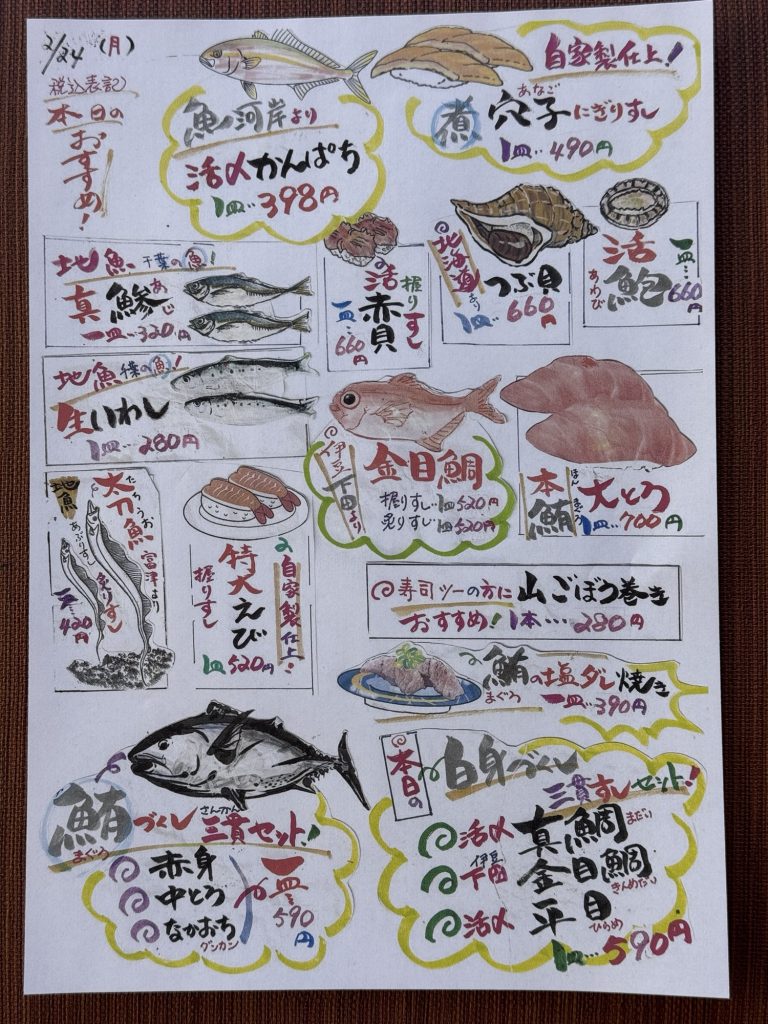 2/24 (月)
税込表記
本日の
おすすめ!
魚河岸より
活〆かんぱち
1皿‥398円
自家製仕上!
煮
あなご
穴子にぎりすし
1皿‥490円
地魚 千葉の魚!
真鯵
あじ
一皿‥320円
握りすし
活赤貝
一皿‥660円
北海道より
つぶ貝
1皿‥660円
活鮑
あわび
一皿‥660円
地魚 千葉の魚!
生いわし
1皿‥280円
伊豆下田より
金目鯛
握りすし‥1皿520円
炙りすし‥1皿520円
本鮪
ほんまぐろ
大とろ
1皿‥700円
地魚
太刀魚
たちうお
富津より
あぶりすし
炙りすし
一皿‥420円
自家製仕上!
特大えび
握りすし
1皿520円
寿司ツーの方に 山ごぼう巻き
おすすめ! 1本‥‥280円
鮪の塩ダレ焼き
まぐろ
一皿‥390円
鮪づくし 三貫セット!
まぐろ
さんかん
赤身
中とろ
なかおち
グンカン
一皿‥590円
本日の
白身づくし
三貫すしセット!
活〆 真鯛 まだい
伊豆
下田 金目鯛 きんめだい
活〆 平目 ひらめ
1皿‥590円